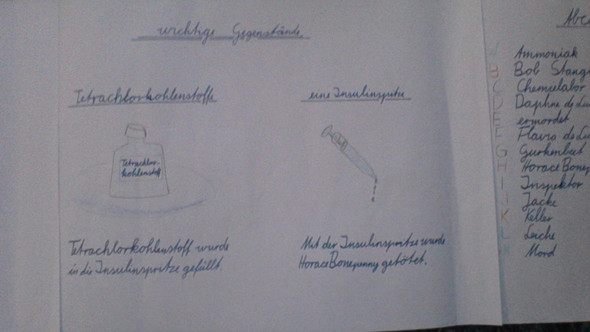 wichtige Gegenstände
Tetrachlorkohlenstoffe
Tetrachlor-
kohlenstoff
Tetrachlorkohlenstoff wurde
in die Insulinspritze gefüllt.
eine Insulinspritze
Mit der Insulinspritze wurde
Horace Bonepenny getötet.
Abc
A
B
C
D
E
F
G
H
I
J
K
L
M
Ammoniak
Bob Stang
Chemielabor
Daphne de Lu
ermordet
Flavia de Lu
Gurkenbeet
Horace Bonep
Inspektor
Jacke
Keller
Leiche
Mord